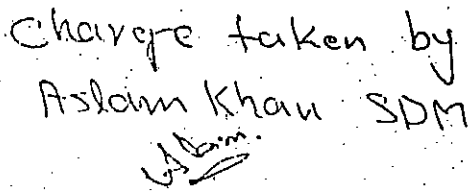 Charge taken by
Aslam Khan SDM